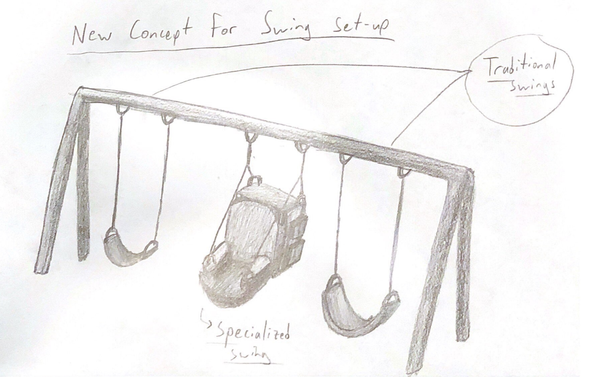 New Concept For Swing Set-up
Traditional
Swings
Specialized
Swing